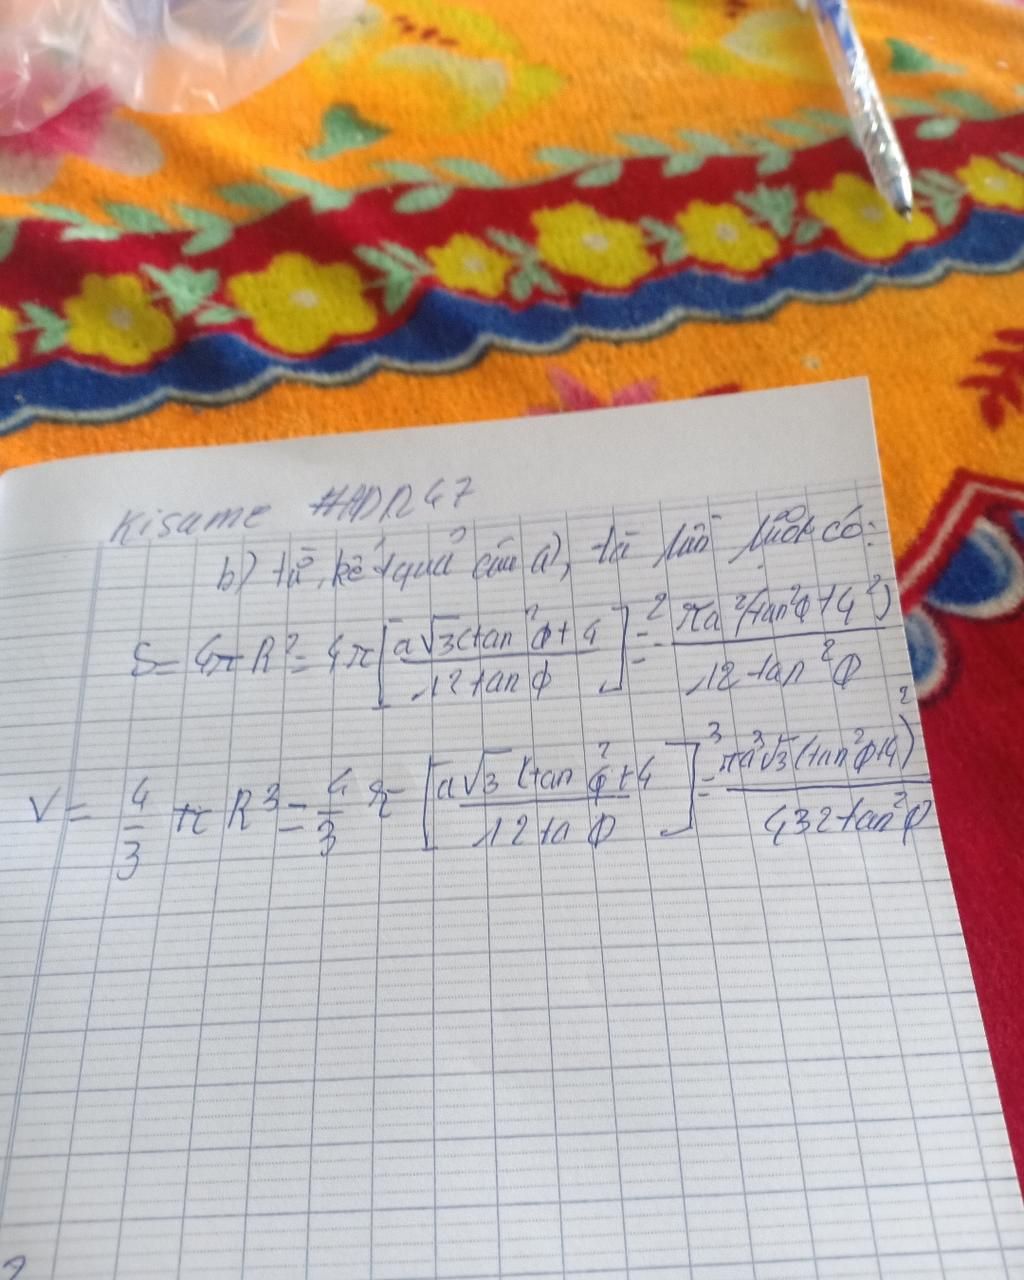 Kisame #ADR47
b) từ kết quả câu a), ta lần lượt có:
S = 4π R² = 4π [a√3(tan²φ+4 / 12 tan φ]² = πa²(tan²φ+4²) / 12 tan²φ
V = 4/3 π R³ = 4/3 π [a√3 (tan²φ+4 / 12 ta φ]³ = πa³√3(tan²φ+4)² / 432 tan²φ